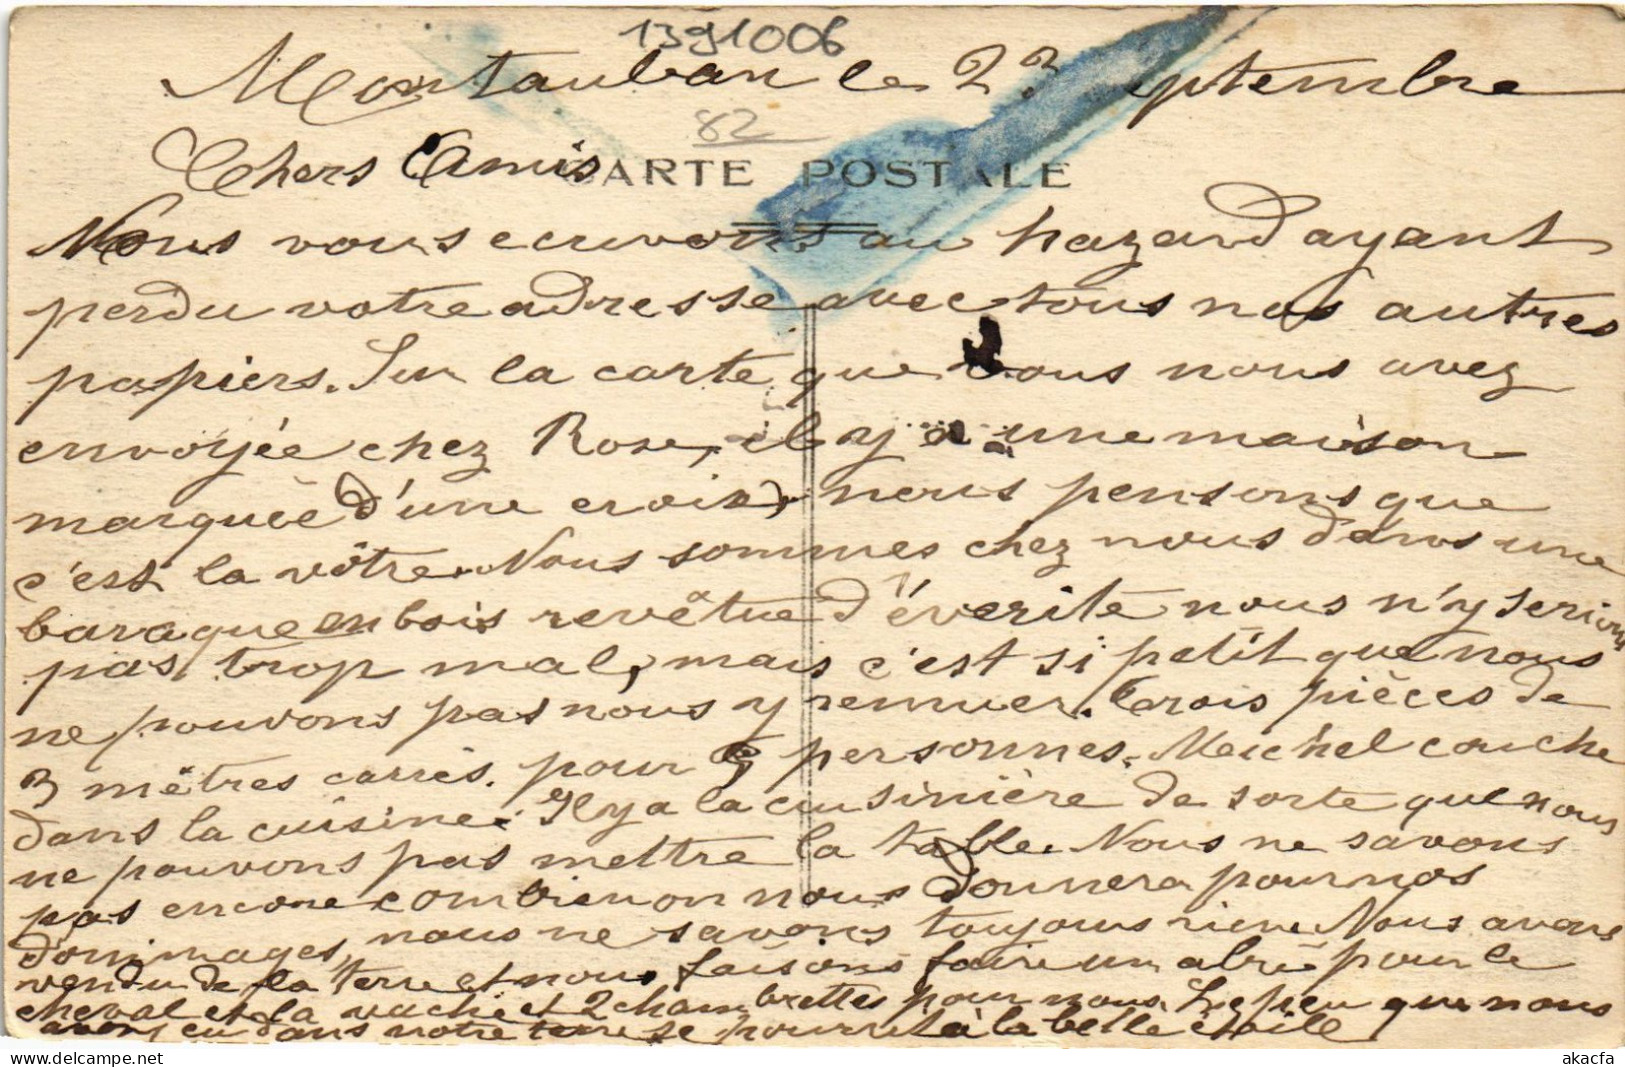 1391006
Montauban le 23 eptembre
82
Chers Amis
CARTE POSTALE
Nous vous ecrivons au hazard ayant
perdu votre adresse avec tous nos autres
papiers. Sur la carte que vous nous avez
envoyée chez Rose, il y a une maison
marquée d'une croix, nous pensons que
c'est la vôtre. Nous sommes chez nous dans une
baraque en bois revêtue d'éverite nous n'y serions
pas trop mal, mais c'est si petit que nous
ne pouvons pas nous y remuer. Trois pièces de
3 mètres carrés. pour 5 personnes. Meichel couche
dans la cuisine. Il y a la cuisinière de sorte que nous
ne pouvons pas mettre la table. Nous ne savons
pas encore combien on nous donnera pour nos
dommages, nous ne savons toujours rien. Nous avons
vendu de la terre et nous faisons faire un abri pour le
cheval et la vache et 2 chambrettes pour nous. Le peu que nous
avons eu dans notre terre se pourrit à la belle étoile
akacfa